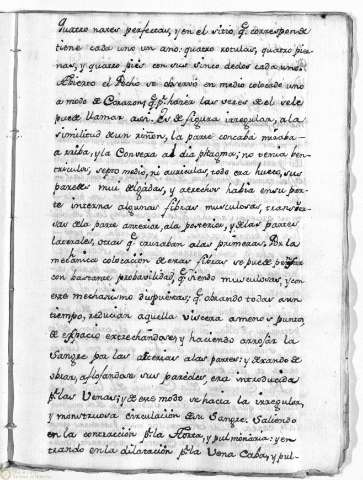 Quatro nares perfectas, y en el sitio q.e corresponde
tiene cada uno un ano. quatro rotulas, quatro pier-
nas, y quatro pies con sus sinco dedos cada uno.
Abierto el Pecho se observó en medio colocado uno
a modo de Corazon; q.e p.r hazer las veces de el se le
puede llamar assi. Es de figura irregular, a la
similitud de un riñon, la parte concaba miraba
arriba, y la Convexa al diaphragma; no tenia ben-
triculos, septo medio, ni auriculas, todo era hueco, sus
paredes mui delgadas, y a trechos habia en su par
te interna algunas fibras musculosas, transver
sas de la parte anterior, a la posterior, y de las partes
laterales, otras q.e cruzaban a las primeras. Por la
mechanica colocacion de estas fibras se puede pensar
con bastante probavilidad, q.e siendo musculosas, y con
este mechanismo dispuestas; q.e obrando todas a un
tiempo, reducian aquella viscera a menos puntos
de espacio estrechandose, y haciendo arrojar la
Sangre por las arterias a las partes; y dexando de
obrar, afloxandose sus paredes, era introducida
p.r las Venas; y de este modo se hacia la irregular,
y monstruosa circulacion de su Sangre. Saliendo
en la contraccion p.r la Aorta, y pulmonaria: y en
trando en la dilatacion p.r la Vena Caba, y pul-